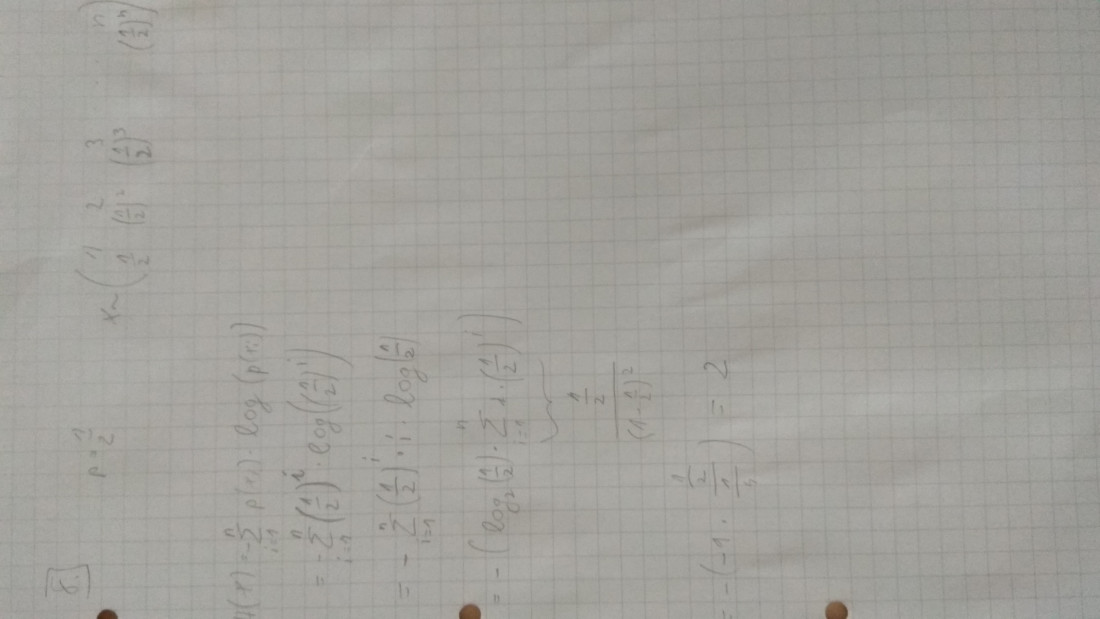 8. p = 1/2 X ~ ( 1 2 3 . . n
1/2 (1/2)^2 (1/2)^3 (1/2)^n )
H(X) = -∑_{i=1}^{n} p(x_i) · log(p(x_i))
= -∑_{i=1}^{n} (1/2)^i · log((1/2)^i)
= - ∑_{i=1}^{n} (1/2)^i · i · log(1/2)
= - (log_2(1/2) · ∑_{i=1}^{n} i · (1/2)^i)
(1/2)/(1-1/2)^2
= -(-1 · (1/2)/(1/4)) = 2